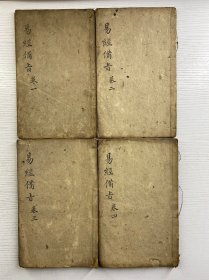 易經備旨 卷一
易經備旨 卷二
易經備旨 卷三
易經備旨 卷四